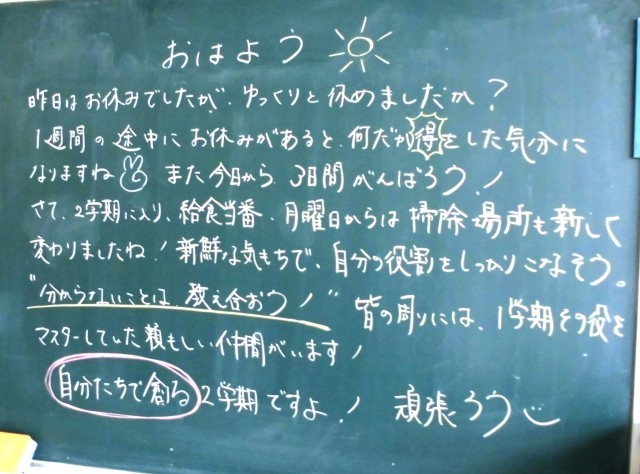 おはよう
昨日はお休みでしたが、ゆっくりと休めましたか？
1週間の途中にお休みがあると、何だか得をした気分に
なりますね また今日から、3日間がんばろう！
さて、2学期に入り、給食当番、月曜日からは掃除場所も新しく
変わりましたね！新鮮な気もちで、自分の役割をしっかりこなそう。
"分からないことは、教え合おう！" 皆の周りには、1学期その役を
マスターしていた頼もしい仲間がいます！
自分たちで創る2学期ですよ！ 頑張ろう